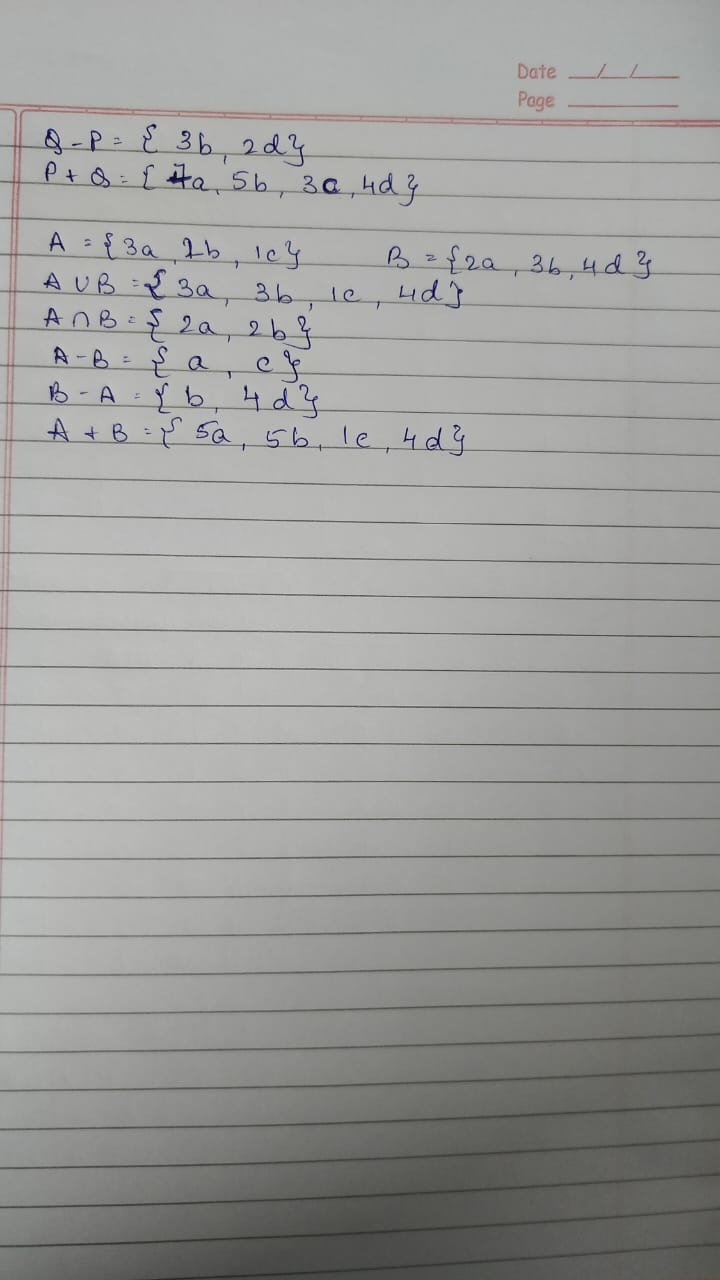 Date _/_/_
Page ____
Q - P = { 3b, 2d}
P + Q = { 7a, 5b, 3c, 4d}
A = {3a, 2b, 1c} B = {2a, 3b, 4d}
A ∪ B = { 3a, 3b, 1c, 4d}
A ∩ B = { 2a, 2b}
A - B = { a, c}
B - A = { b, 4d}
A + B = { 5a, 5b, 1c, 4d}